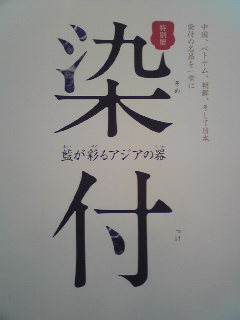 中国、ベトナム、朝鮮、そして日本
染付の名品を一堂に
特別展
染
そめ
藍が彩るアジアの器
あい いろど うつわ
付
つけ